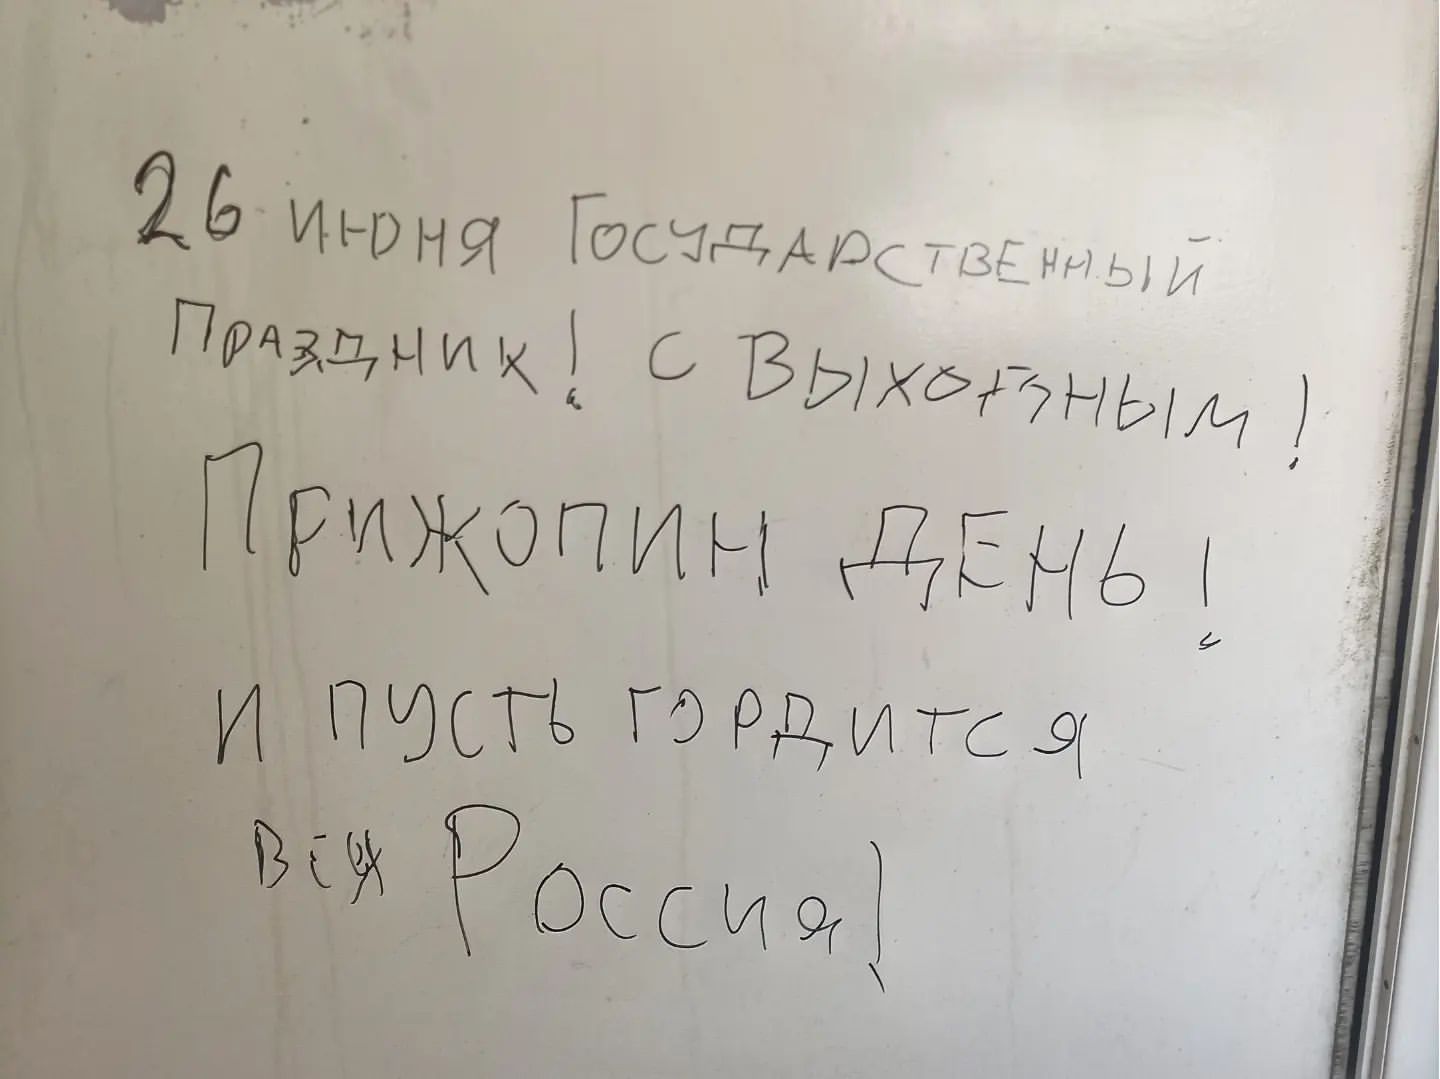 26 июня Государственный
Праздник! с Выходным!
Прижопин день!
и пусть гордится
вся Россия!